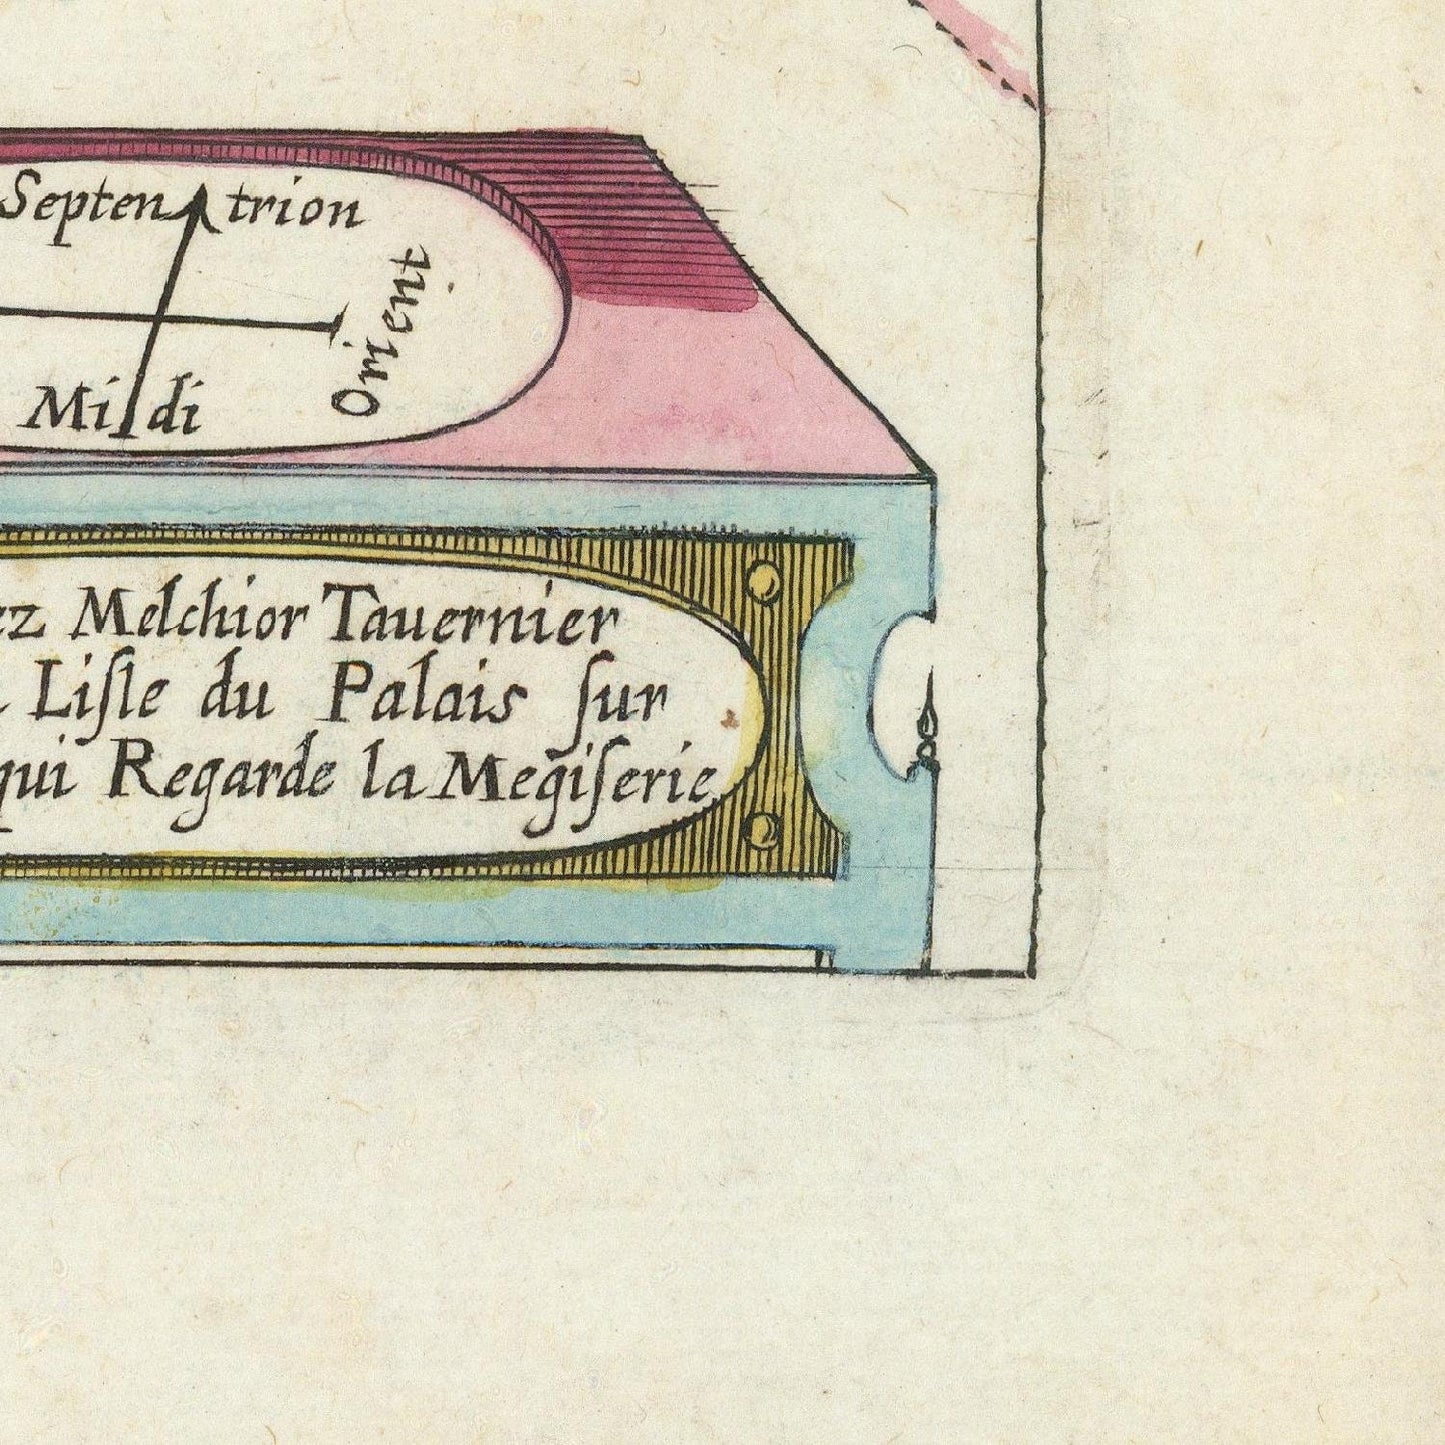 Septentrion
Orient
Midi
ez Melchior Tauernier
Liſle du Palais ſur
qui Regarde la Megiſerie